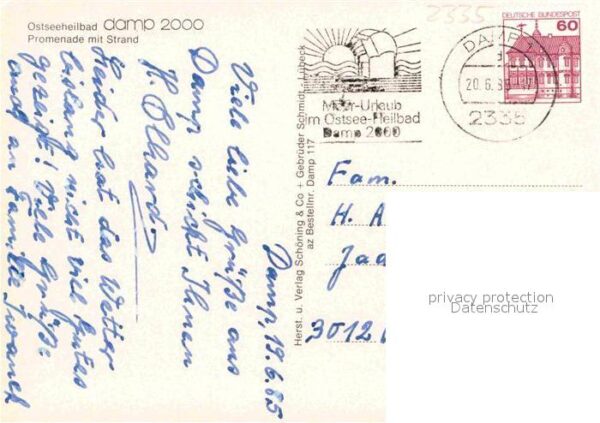 Ostseeheilbad damp 2000
Promenade mit Strand
2335
DEUTSCHE BUNDESPOST
60
DAMP
20.6.85
2335
Meer-Urlaub
im Ostsee-Heilbad
Damp 2000
Herst. u. Verlag Schöning & Co + Gebrüder Schmidt, Lübeck
az Bestellnr. Damp 117
Damp, 19.6.85
Viele liebe Grüße aus
Damp schickt Ihnen
H.
Leider hat das Wetter
bislang nicht viel Gutes
gezeigt! Viele Grüße
auch an Familie
Fam.
H. A
Jad
3012
privacy protection
Datenschutz